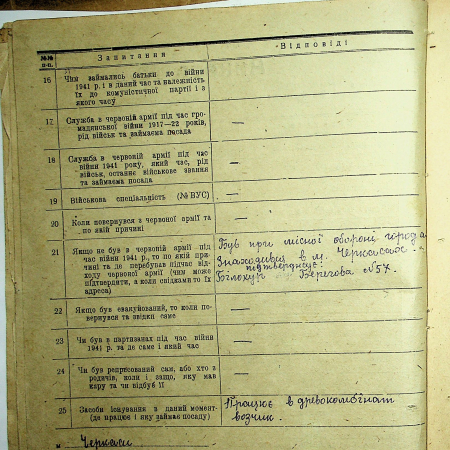 №№ п-п.
Запитання
Відповіді
16
Чим займались батьки до війни
1941 р. і в даний час та належність
їх до комуністичної партії і з
якого часу
—
17
Служба в червоній армії під час гро-
мадянської війни 1917—22 років,
рід військ та займаєма посада
—
18
Служба в червоній армії під час
війни 1941 року, який час, рід
військ, останнє військове звання
та займаєма посада
—
19
Військова спеціальність (№ ВУС)
—
20
Коли повернувся з червоної армії та
по якій причині
—
21
Якщо не був в червоній армії під
час війни 1941 р., то по якій при-
чині та де перебував підчас від-
ходу червоної армії (чим може
підтвердити, а коли свідками то їх
адреса)
Був при місної обороні города
Знаходився в м. Черкасах. -
підтверджує:
Берегова №57.
22
Якщо був евакуйований, то коли по-
вернувся та звідки саме
—
23
Чи був в партизанах під час війни
1941 р. та де саме і який час
—
24
Чи був репресований сам, або хто з
родичів, коли і защо, яку мав
кару та чи відбув її
—
25
Засоби існування в даний момент-
(де працює і яку займає посаду)
Працює в древокомбінат
возчик.
м Черкаси